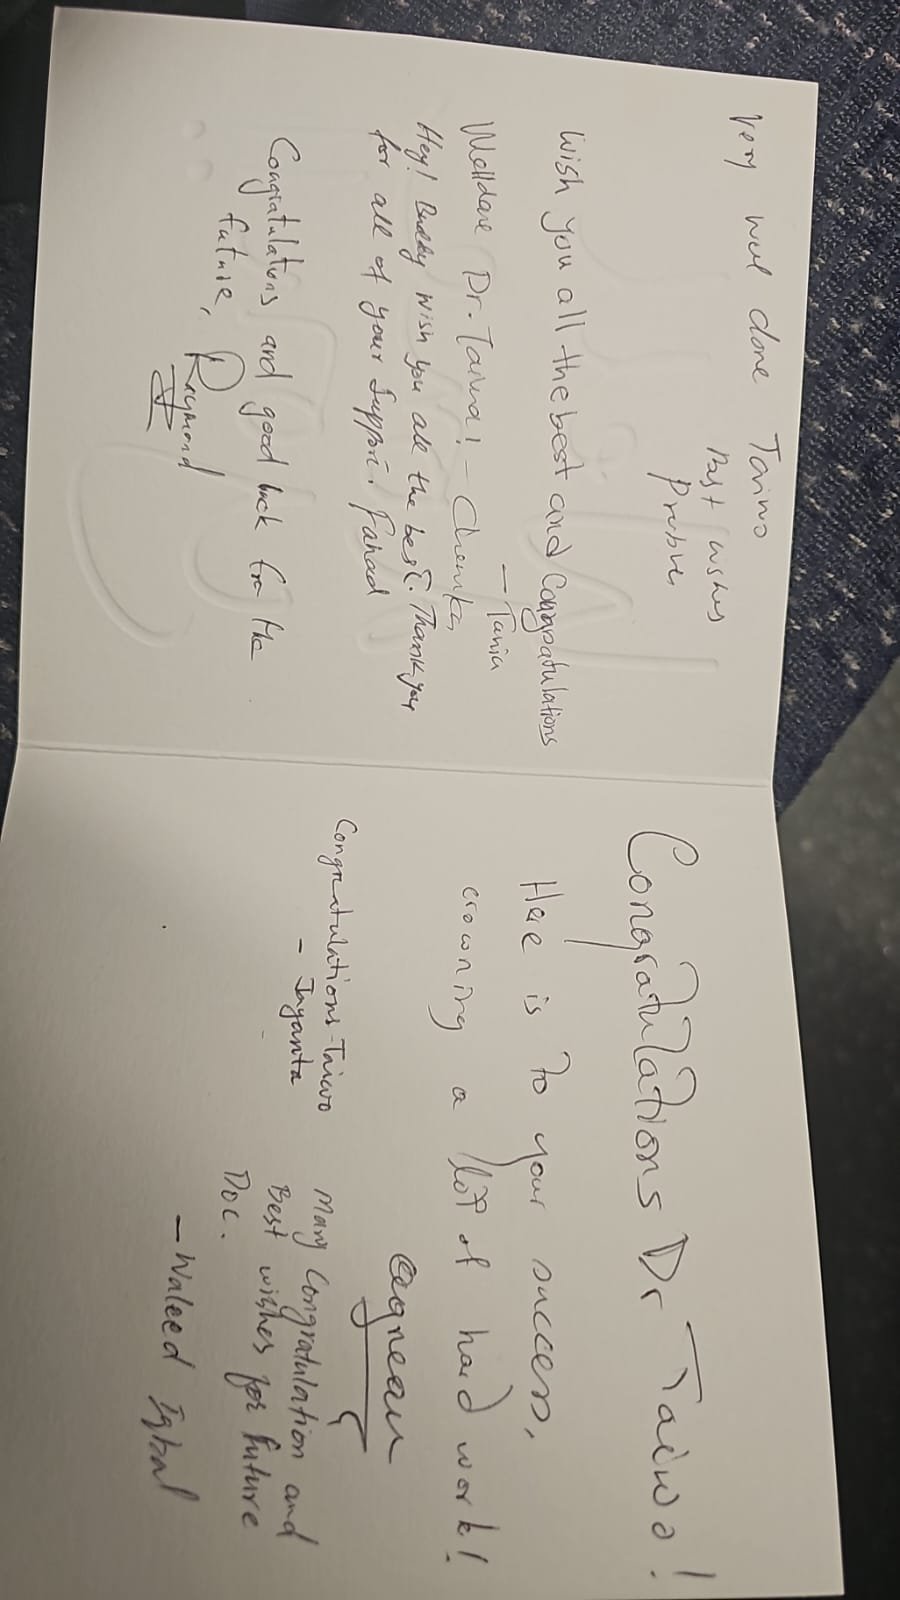 Very well done Taiwo
Best wishes
Wish you all the best and Congratulations
— Tania
Welldone Dr. Taiwo! —
Hey! Buddy wish you all the best. Thank you
for all of your Support. Fahad
Congratulations and good luck for the
future, Raymond
Congratulations Dr Taiwo!
Here is to your success,
crowning a lot of hard work!
Congratulations Taiwo
- Jayanta
Many Congratulation and
Best wishes for future
Doc.
— Waleed Iqbal